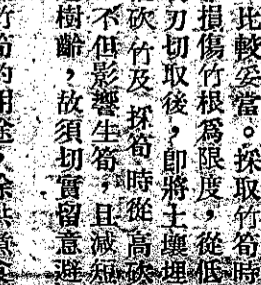 比較妥當。採取竹筍時
損傷竹根爲限度，從低
刃切取後，卽將土壤埋
砍竹及採筍時從高砍
不但影響生筍，且減短
樹齡，故須切實留意避
竹筍的用途，除供